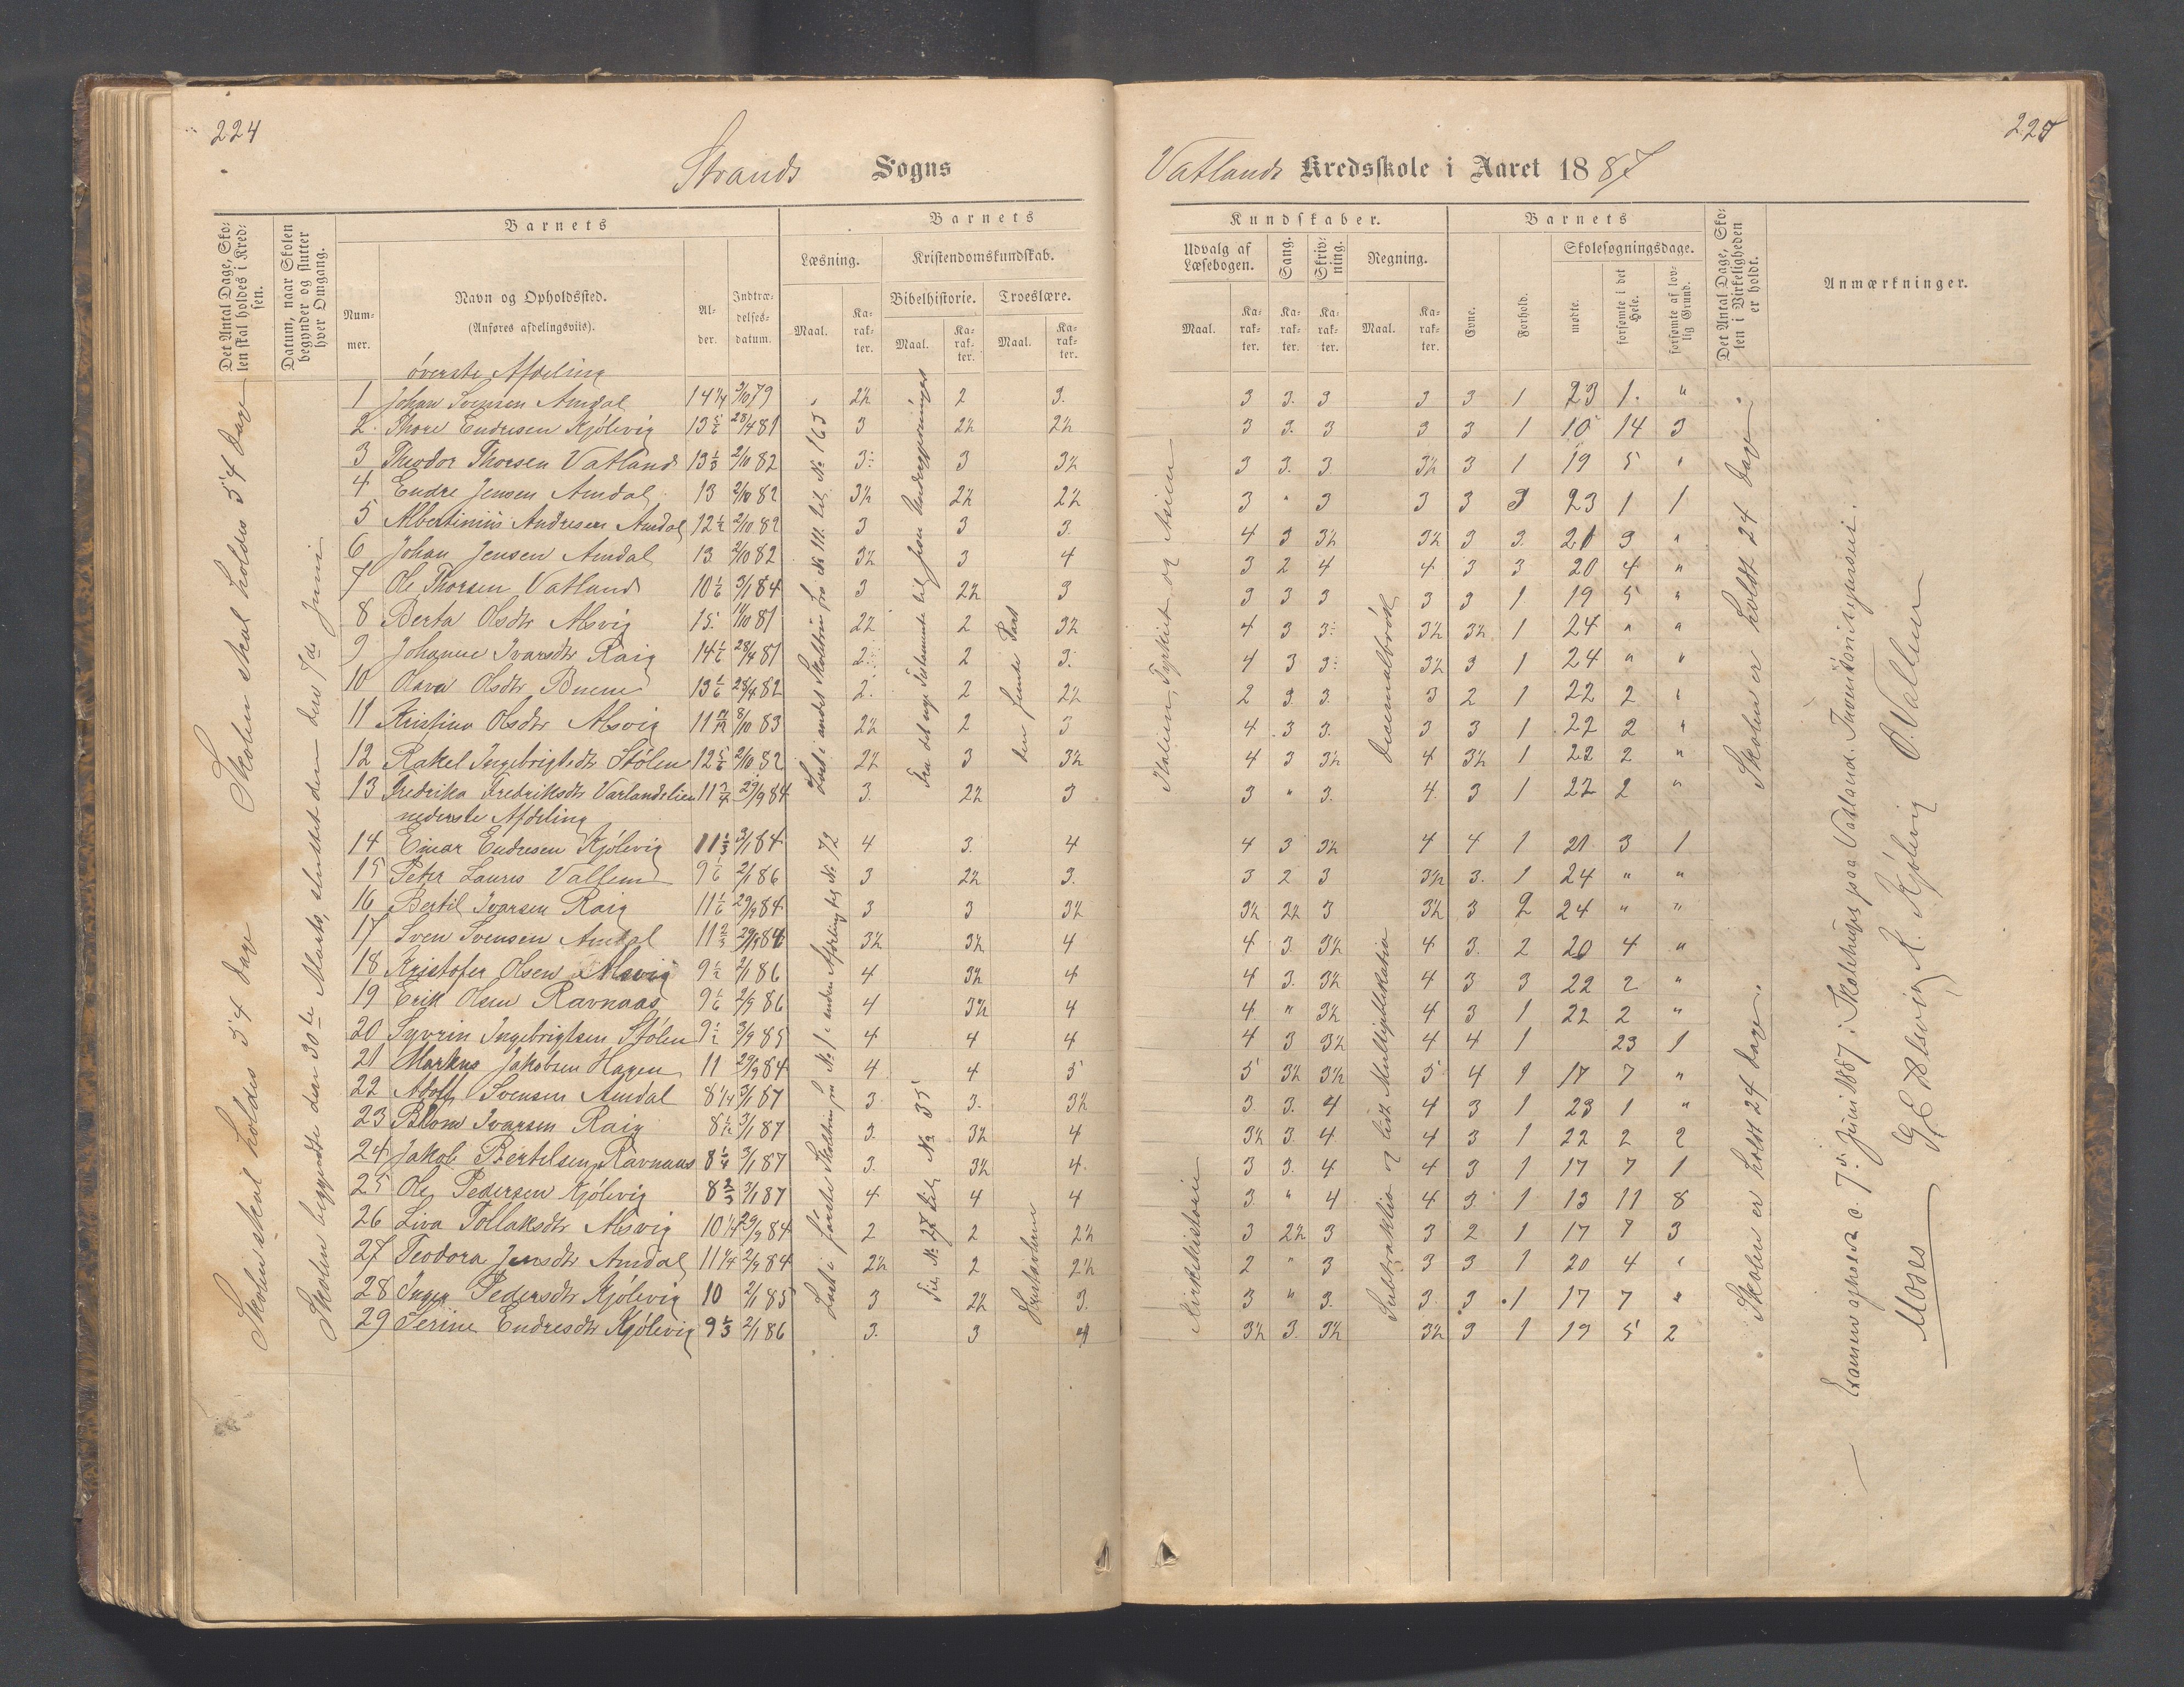 224
225
Strands Sogns
Vatlands Kredsskole i Aaret 1887
Det Antal Dage, Skolen skal holdes i Kredsen.
Datum, naar Skolen begynder og slutter hver Omgang.
Barnets
Nummer.
Navn og Opholdssted.
(Anføres afdelingsviis).
Alder.
Indtrædelsesdatum.
Barnets
Læsning.
Kristendomskundskab.
Bibelhistorie.
Troeslære.
Maal.
Karakter.
Maal.
Karakter.
Maal.
Karakter.
Kundskaber.
Udvalg af Læsebogen.
Sang.
Skrivning.
Regning.
Maal.
Karakter.
Karakter.
Karakter.
Maal.
Karakter.
Barnets
Evne.
Forhold.
Skolesøgningsdage.
mødte.
forsømte i det Hele.
forsømte af lovlig Grund.
Det Antal Dage, Skolen i Virkeligheden er holdt.
Anmærkninger.
øverste Afdeling
1 Johan Svensen Amdal 14 1/4 3/10 79 2½ 2 3. 3 3. 3 3 3 1 23 1. "
2 Thore Endresen Kjölevig 13 5/6 28/4 81 3 2½ 2½ 3 3. 3 3 3 1 10 14 3
3 Theodor Thorsen Vatland 13 1/3 2/10 82 3 3 3½ 3 3. 3. 3½ 3 1 19 5 "
4 Endre Jensen Amdal 13 2/10 82 3½ 2½ 2½ 3 " 3 3 3 3 23 1 1
5 Albertinius Andresen Amdal 12 1/2 2/10 82 3 3 3. 4 3 3½ 3½ 3 3. 21 3 "
6 Johan Jensen Amdal 13 2/10 82 3½ 3 4 3 2 4 4 3 3 20 4 "
7 Ole Thorsen Vatland 10 1/6 3/1 84 3 2½ 3 3 3 3 3 3 1 19 5 "
8 Berta Olsdtr Alsvig 15. 11/10 81 2½ 2 3½ 4 3 3 3½ 3½ 1 24 " "
9 Johanne Ivarsdtr Raig 14 1/6 28/4 81 2 2 3. 4 3 3 3½ 3 1 24 " "
10 Olava Olsdtr Bueme 13 1/6 28/4 82 2. 2 2½ 2 3. 3. 3 2 1 22 2 "
11 Kristine Olsdtr Alsvig 11 11/12 8/10 83 2½ 2 3 4 3 3. 3 3 1 22 2 "
12 Rakel Ingebrigtsdtr Stölen 12 5/6 2/10 82 2½ 3 3½ 4 3 3½ 4 3½ 1 22 2 "
13 Fredrika Fredriksdtr Varlandslien 11 3/4 29/9 84 3. 2½ 3 3 " 3. 4. 3 1 22 2 "
nederste Afdeling
14 Einar Endresen Kjölevig 11 1/3 3/1 84 4 3. 4 4 3 3½ 4 4 1 21 3 1
15 Peter Laures Vallem 9 1/6 2/1 86 3 2½ 3. 3 2 3 3½ 3. 1 24 " "
16 Bertil Ivarsen Raig 11 1/6 29/9 84 3 3 3½ 3½ 2½ 3 3½ 3 2 24 " "
17 Sven Svensen Amdal 11 2/3 29/9 84 3½ 3½ 4 4 3. 3½ 4 3. 2 20 4 "
18 Kristofer Olsen Alsvig 9 1/2 2/1 86 4 3½ 4 4 3. 3½ 4 3 3 22 2 "
19 Erik Olsen Ravnaas 9 1/6 2/9 86 4 3½ 4 4 " 3½ 4 3 1 22 2 "
20 Syvrin Ingebrigtsen Stölen 9 1/2 3/9 85 4 4 4 4 3 3½ 4 4 1 23 1
21 Markus Jakobsen Hagen 11 29/9 84 4 4 5 5 3½ 3½ 5 4 1 17 7 "
22 Adolf Svensen Amdal 8 1/4 3/1 87 3 3. 3½ 3 3. 4 4 3 1 23 1 "
23 Blom Ivarsen Raig 8 1/12 3/1 87 3. 3½ 4 3½ 3. 4. 4 3 1 22 2 2
24 Jakob Bertelsen Ravnaas 8 1/4 3/1 87 3. 3½ 4. 3 3. 4 4 3 1 17 7 1
25 Ole Pedersen Kjölevig 8 2/3 3/1 87 4 4 4 3 " 4 4 3. 1 13 11 8
26 Liva Tollaksdtr Alsvig 10 1/4 29/9 84 2 2 2½ 3 2½ 3 3 2 1 17 7 3
27 Teodora Jensdtr Amdal 11 1/4 2/9 84 2½ 2 2½ 2 " 3 3 3 1 20 4 "
28 Inger Pedersdtr Kjölevig 10 2/1 85 3 2½ 3. 3 " 3. 3. 3 1 17 7 "
29 Serine Endresdtr Kjölevig 9 1/3 2/1 86 3. 3 4 3½ 3. 3½ 3½ 3 1 19 5 2
Skolen skal holdes 54 Dage
Skolen skal holdes 54 Dage
Skolen begyndte den 30te Marts, sluttet den den 7de Juni
Læst i andet Skoletrin fra № 111 til № 163
Læst i første Skoletrin fra № 1 i anden Afdeling til № 72
Fra det nye Testamente til
Fra № 27 til № 35
den femte Part
Italien, Tyrkiet og Asien
Kirkehistorie
Decimalbrök
Subtraktion og lidt Multiplikation
Skolen er holdt 24 Dage
Skolen er holdt 24 Dage.
Examens afholdt d. 7de Juni 1887 i Skolehuset paa Vatland. Inventariet
G E Alsvig R. Kjölevig O. Vallem
Moses